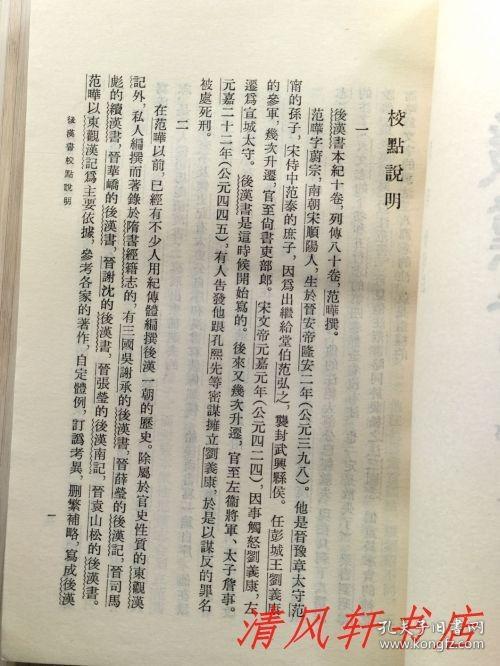 校點說明
一
後漢書本紀十卷，列傳八十卷，范曄撰。
范曄字蔚宗，南朝宋順陽人，生於晉安帝隆安二年（公元三九八）。他是晉豫章太守范
甯的孫子，宋侍中范泰的庶子，因爲出繼給堂伯范弘之，襲封武興縣侯。任彭城王劉義康
的參軍，幾次升遷，官至尙書吏部郎。宋文帝元嘉元年（公元四二四），因事觸怒劉義康，左
遷爲宣城太守。後漢書是這時候開始寫的。後來又幾次升遷，官至左衞將軍、太子詹事。
元嘉二十二年（公元四四五），有人告發他跟孔熙先等密謀擁立劉義康，於是以謀反的罪名
被處死刑。
二
在范曄以前，已經有不少人用紀傳體編撰後漢一朝的歷史。除屬於官史性質的東觀漢
記外，私人編撰而著錄於隋書經籍志的，有三國吳謝承的後漢書，晉薛瑩的後漢記，晉司馬
彪的續漢書，晉華嶠的後漢書，晉謝沈的後漢書，晉張瑩的後漢南記，晉袁山松的後漢書。
范曄以東觀漢記爲主要依據，參考各家的著作，自定體例，訂譌考異，刪繁補略，寫成後漢
後漢書校點說明
一
清风轩书店
孔夫子旧书网
www.kongfz.com